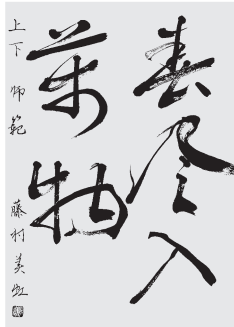 春入
萬物
上下 師範 藤村美虹